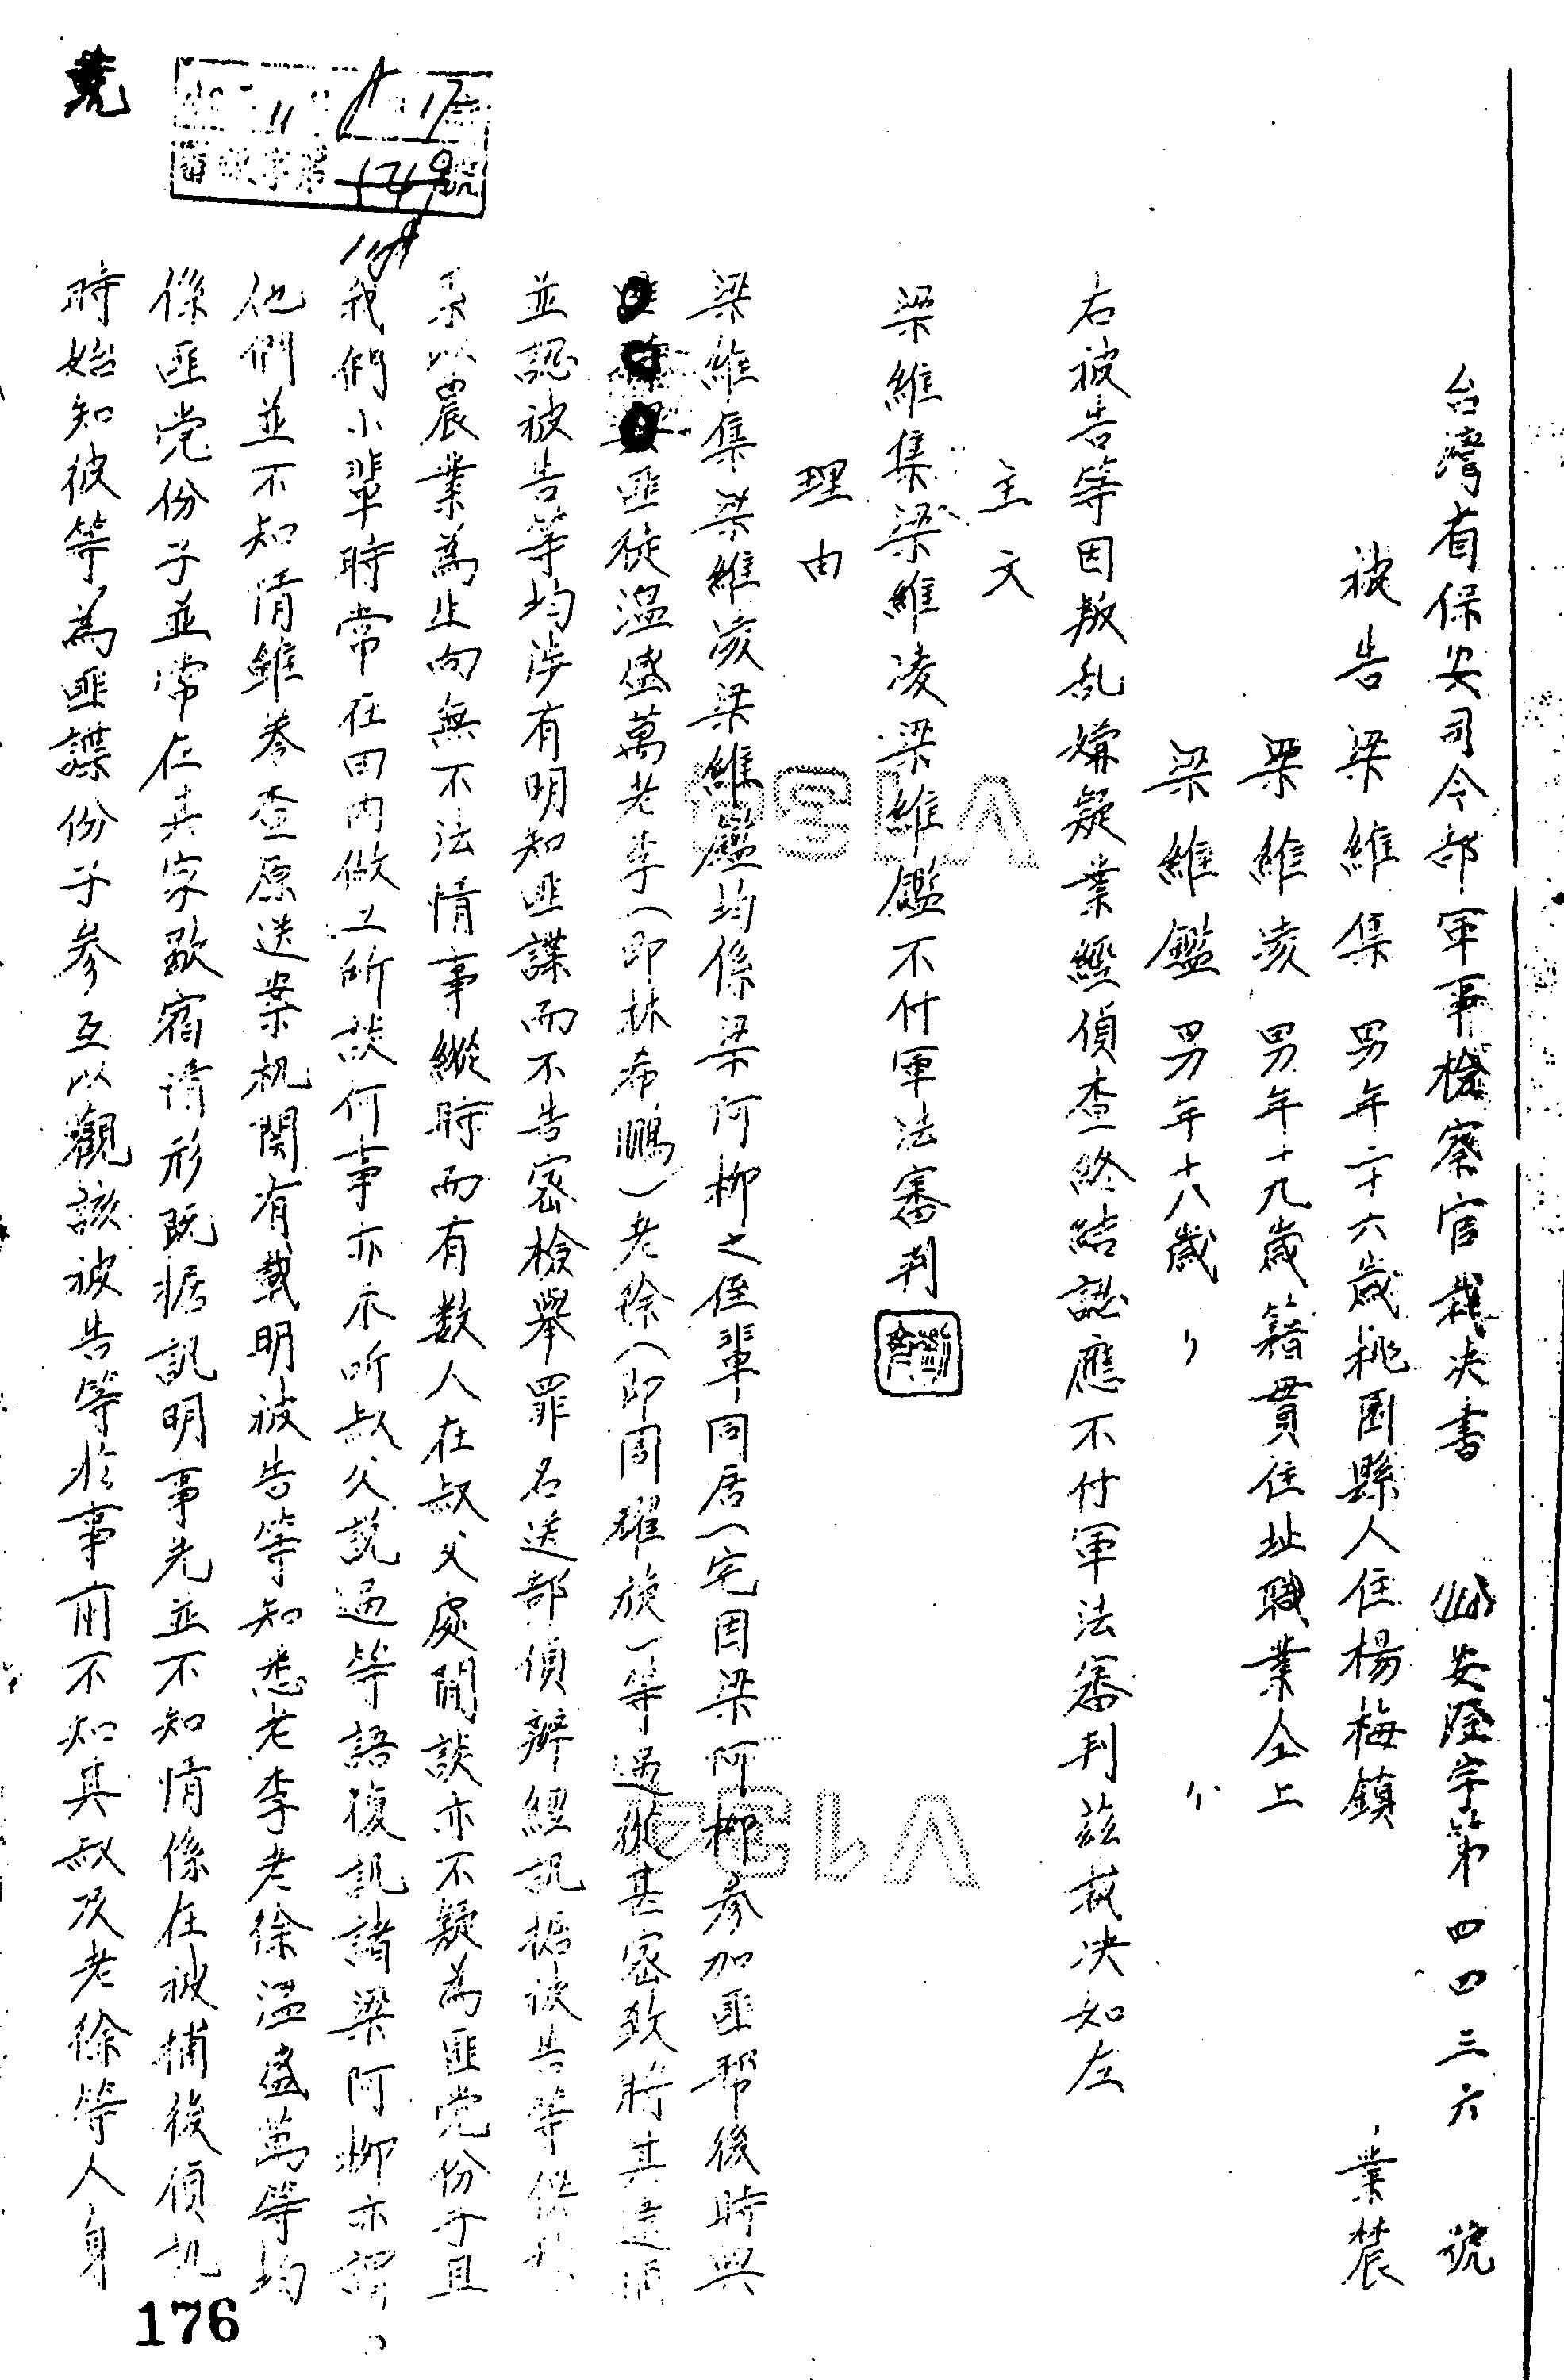 台湾省保安司令部軍事檢察官裁决書 安澄字第四四三六號
被告 梁維集 男年二十六歲桃園縣人住楊梅鎮 業農
梁維凌 男年十九歲籍貫住址職業仝上
梁維鑑 男年十八歲 〃 〃
右被告等因叛乱嫌疑業經偵查終結認應不付軍法審判茲裁决如左
主文
梁維集梁維凌梁維鑑不付軍法審判
理由
梁維集梁維凌梁維鑑均係梁阿柳之侄輩同居一宅因梁阿柳參加匪帮後時與
匪徒温盛萬老李(即林希鵬)老徐(即周耀旋)等過從甚密致將其逮捕
並認被告等均涉有明知匪諜而不告密檢舉罪名送部偵辦經訊据被告等供我
系以農業為生向無不法情事縱時而有数人在叔父處閒談亦不疑為匪党份子且
我們小輩時常在田内做工所談何事亦未听叔父説過等語復訊諸梁阿柳亦謂
他們並不知情雖參查原送案机関有載明被告等知悉老李老徐温盛萬等均
係匪党份子並常在其家歇宿情形既据訊明事先並不知情係在被捕後偵訊
時始知彼等為匪諜份子參互以觀該被告等於事前不知其叔及老徐等人身
176